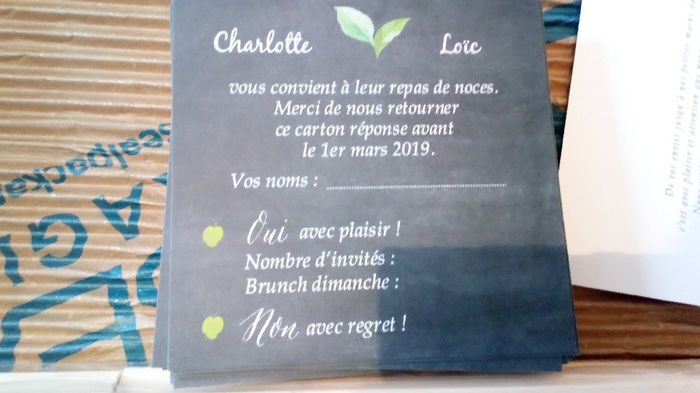 Charlotte Loïc
vous convient à leur repas de noces.
Merci de nous retourner
ce carton réponse avant
le 1er mars 2019.
Vos noms : ........................................
Oui avec plaisir !
Nombre d'invités :
Brunch dimanche :
Non avec regret !